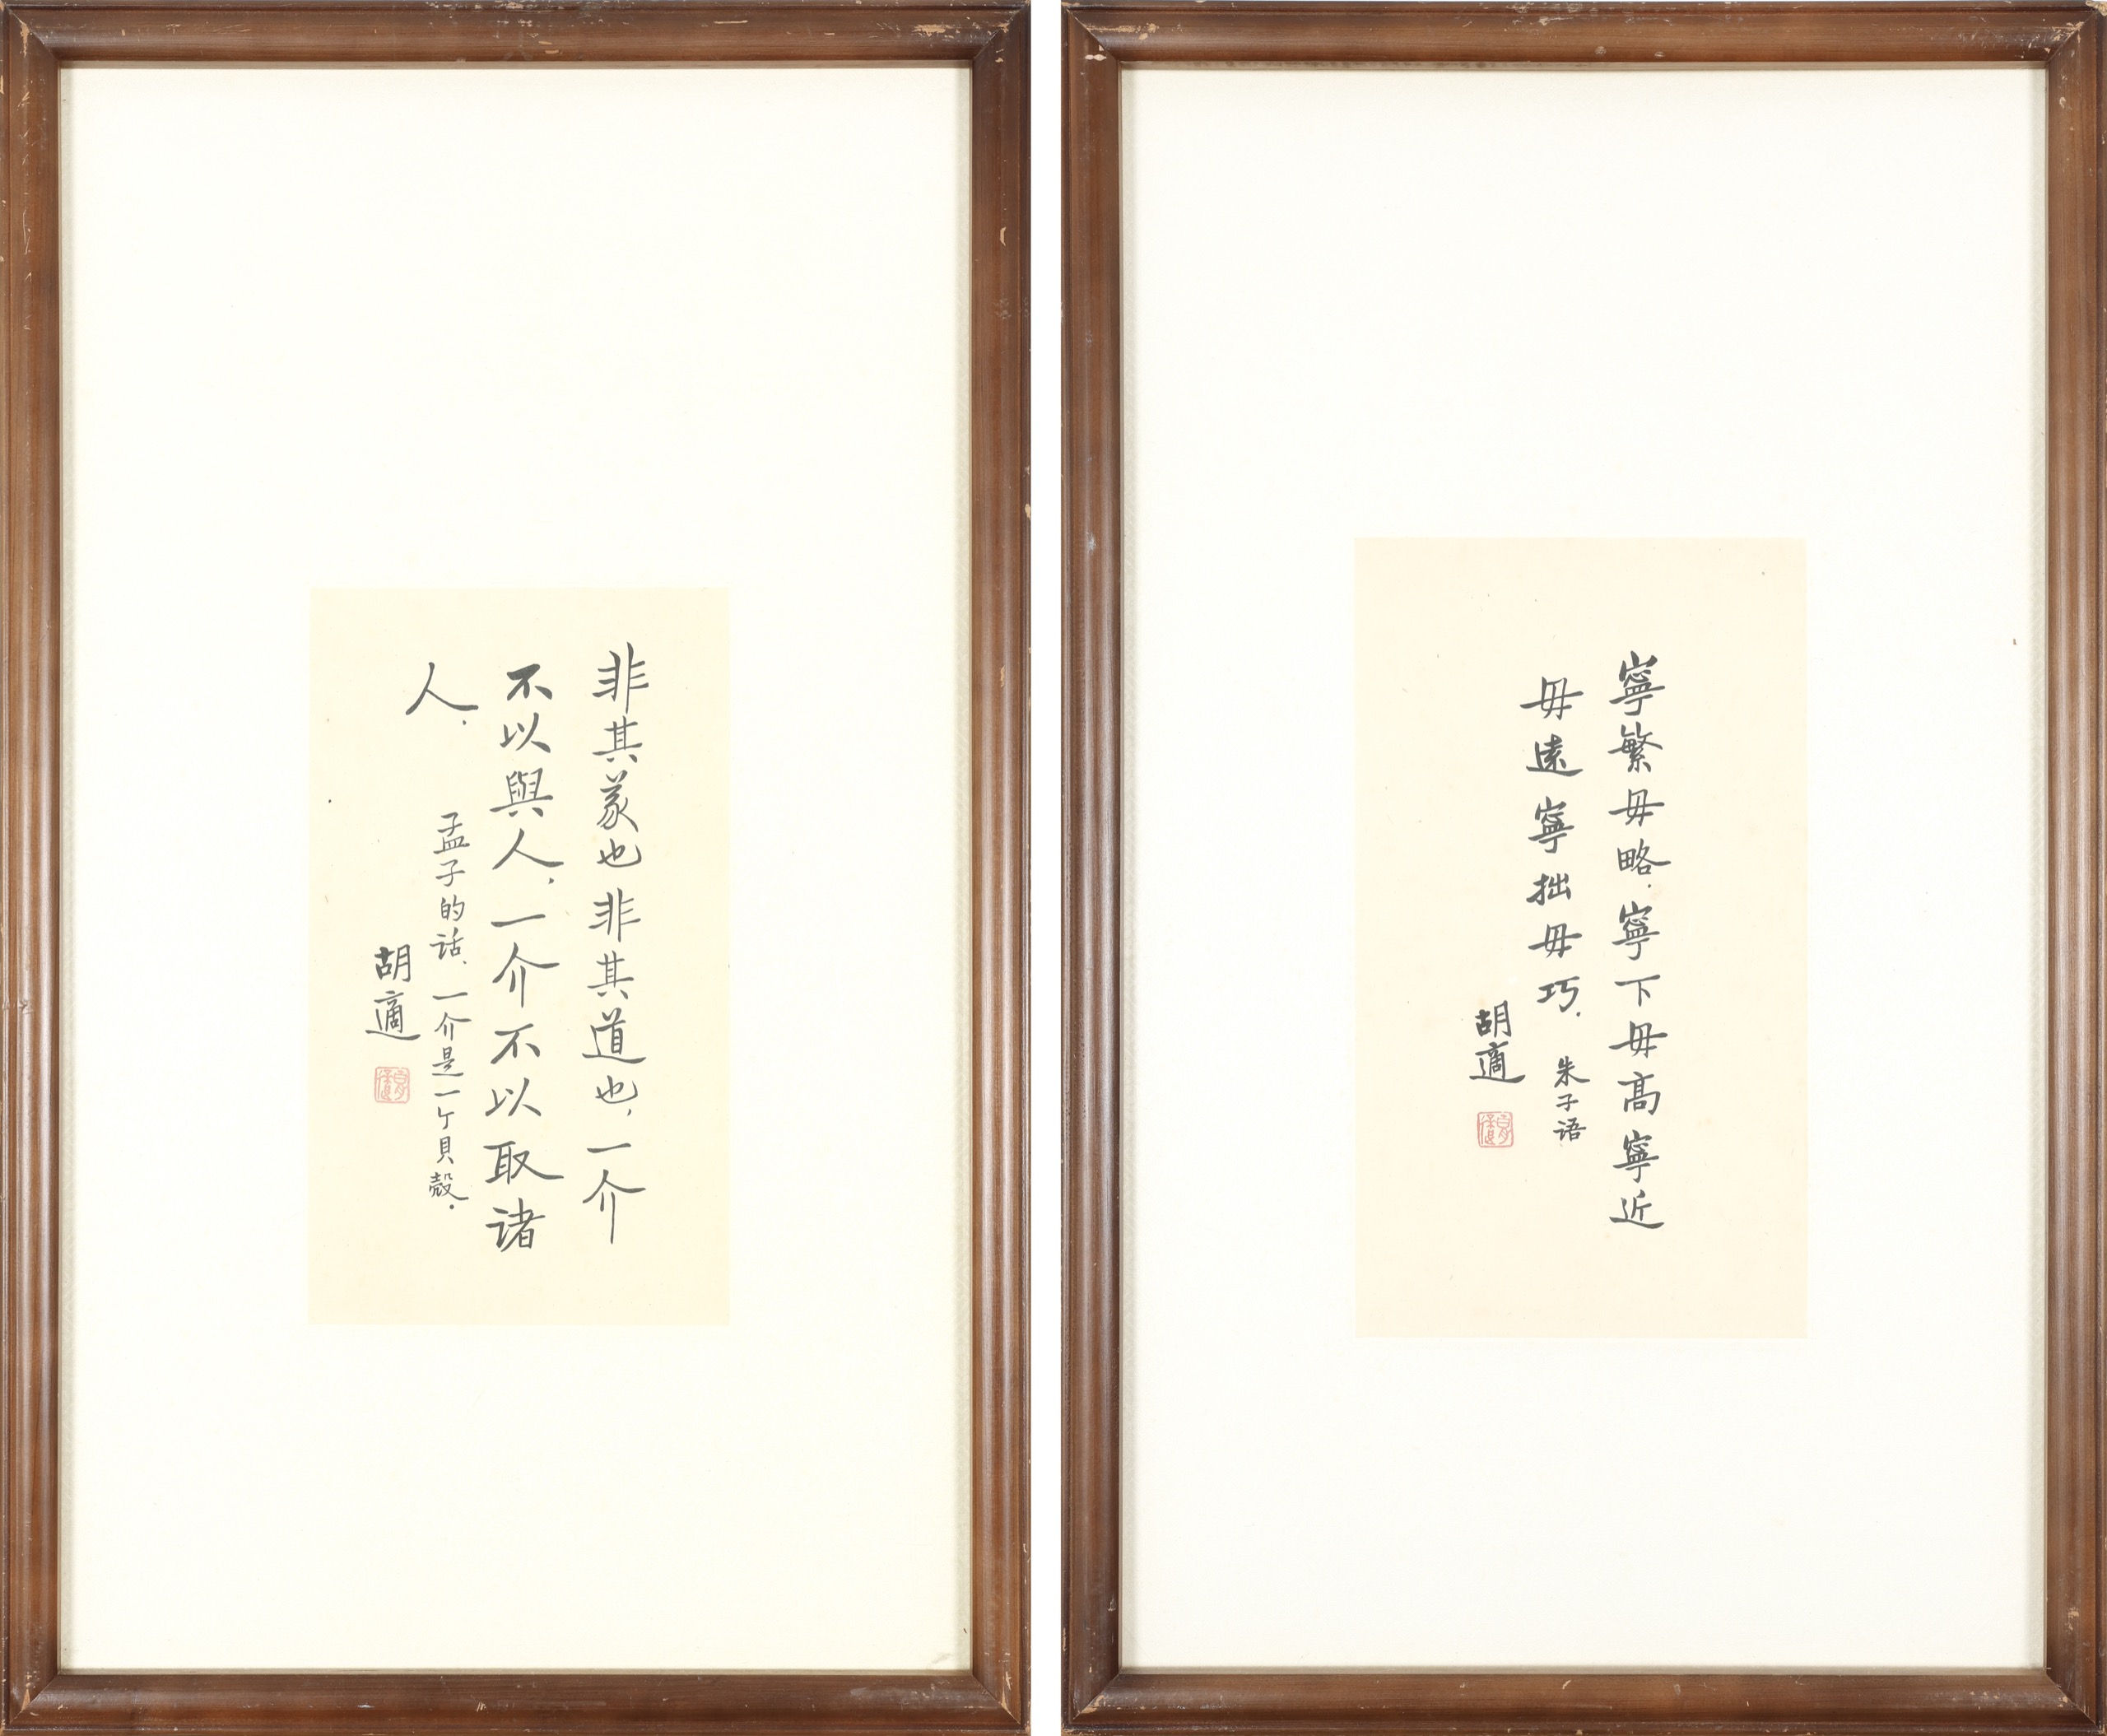 寧繁毋略.寧下毋高寧近
毋遠寧拙毋巧.
朱子语
胡適
非其義也非其道也,一介
不以與人,一介不以取诸
人.
孟子的话、一介是一个貝殼.
胡適